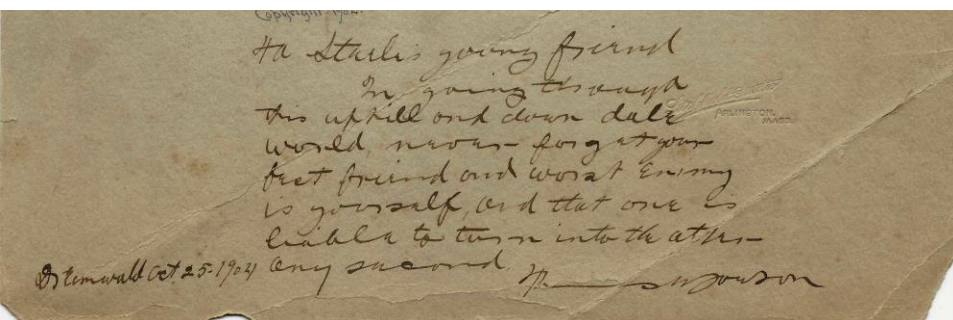 Copyright 1902
To Starlis young friend
In going through
this uphill and down dale
world never forget your
best friend and worst Enemy
is yourself, and that one is
liable to turn into the other
any second
Oct. 25-1904
ARLINGTON,
MASS.